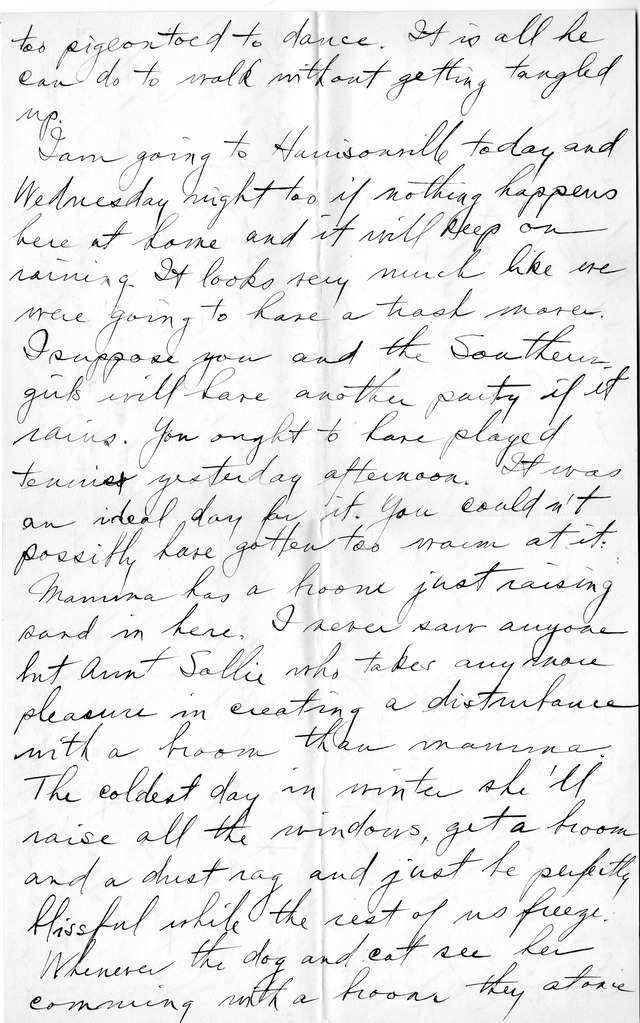 too pigeontoed to dance. It is all he
can do to walk without getting tangled
up.
I am going to Harrisonville today and
Wednesday night too if nothing happens
here at home and it will keep on
raining. It looks very much like we
were going to have a trash mover.
I suppose you and the Southern
girls will have another party if it
rains. You ought to have played
tennis yesterday afternoon. It was
an ideal day for it. You couldn't
possibly have gotten too warm at it.
Mamma has a broom just raising
sand in here. I never saw anyone
but Aunt Sallie who takes any more
pleasure in creating a disturbance
with a broom than mamma.
The coldest day in winter she'll
raise all the windows, get a broom
and a dust rag and just be perfectly
blissful while the rest of us freeze.
Whenever the dog and cat see her
comming with a broom they at once